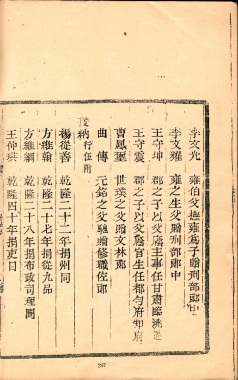 李文光 雍伯父撫雍爲子贈刑部郎中
李文耀 雍之生父贈刑部郎中
王守坤 郡之子以父廕主事任甘肅臨洮道
王守震 郡之子以父廕官生任都勻府知府
曹鳳麗 世璞之父贈文林郎
曲傳 元銘之父馳贈修職佐郎
援納行伍附
楊從善 乾隆二十二年捐州同
方維翰 乾隆十七年捐從九品
方維綱 乾隆二十八年捐布政司理問
王仲琪 乾隆四十年捐吏目
287